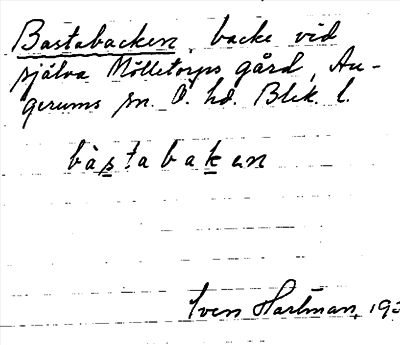 Bastabacken, backe vid
själva Mölletorps gård, Au-
gerums sn. Ö. hd. Blek. l.
bàstabakɐn
Sven Hartman, 193